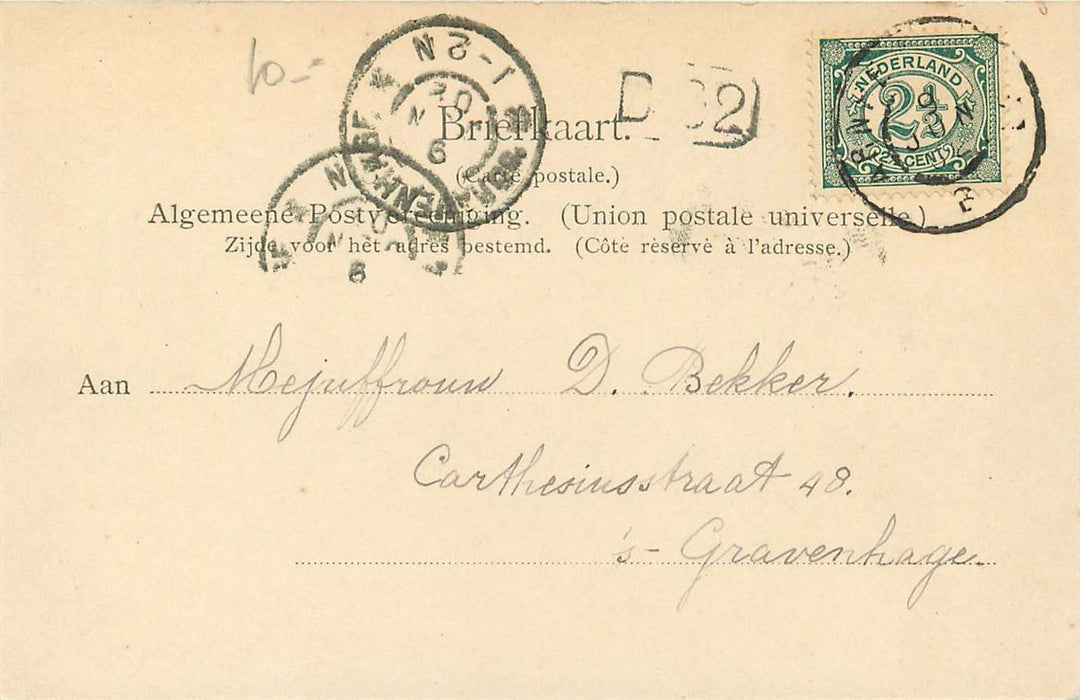 10.-
1-2N
D 32
NEDERLAND
2½
CENT
Briefkaart.
(Carte postale.)
Algemeene Postvereeniging. (Union postale universelle.)
Zijde voor het adres bestemd. (Côtè rèservè à l'adresse.)
Aan Mejuffrouw D. Bekker.
Carthesiusstraat 48.
's-Gravenhage.